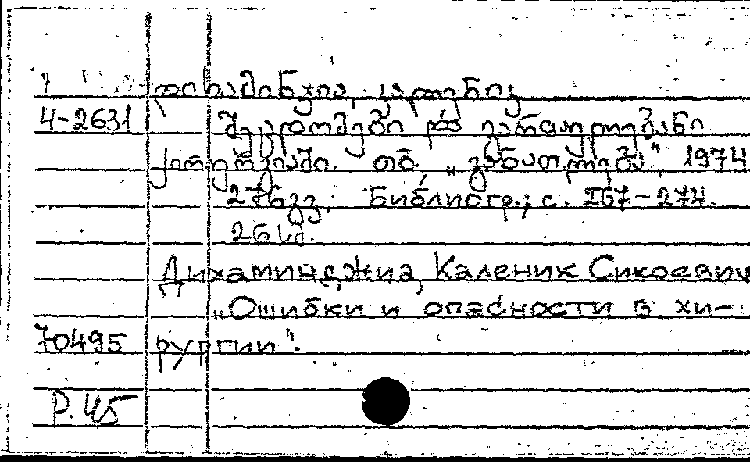 დიხამინჯია, კალენიკ
4-2631 შეცდომები და გართულებანი
ქირურგიაში. თბ., „განათლება“, 1974
276 გვ. Библиогр.; с. 267-274.
Дихаминджиа, Каленик Сикоевич
„Ошибки и опасности в хи-
70495 рургии".
Р. 45